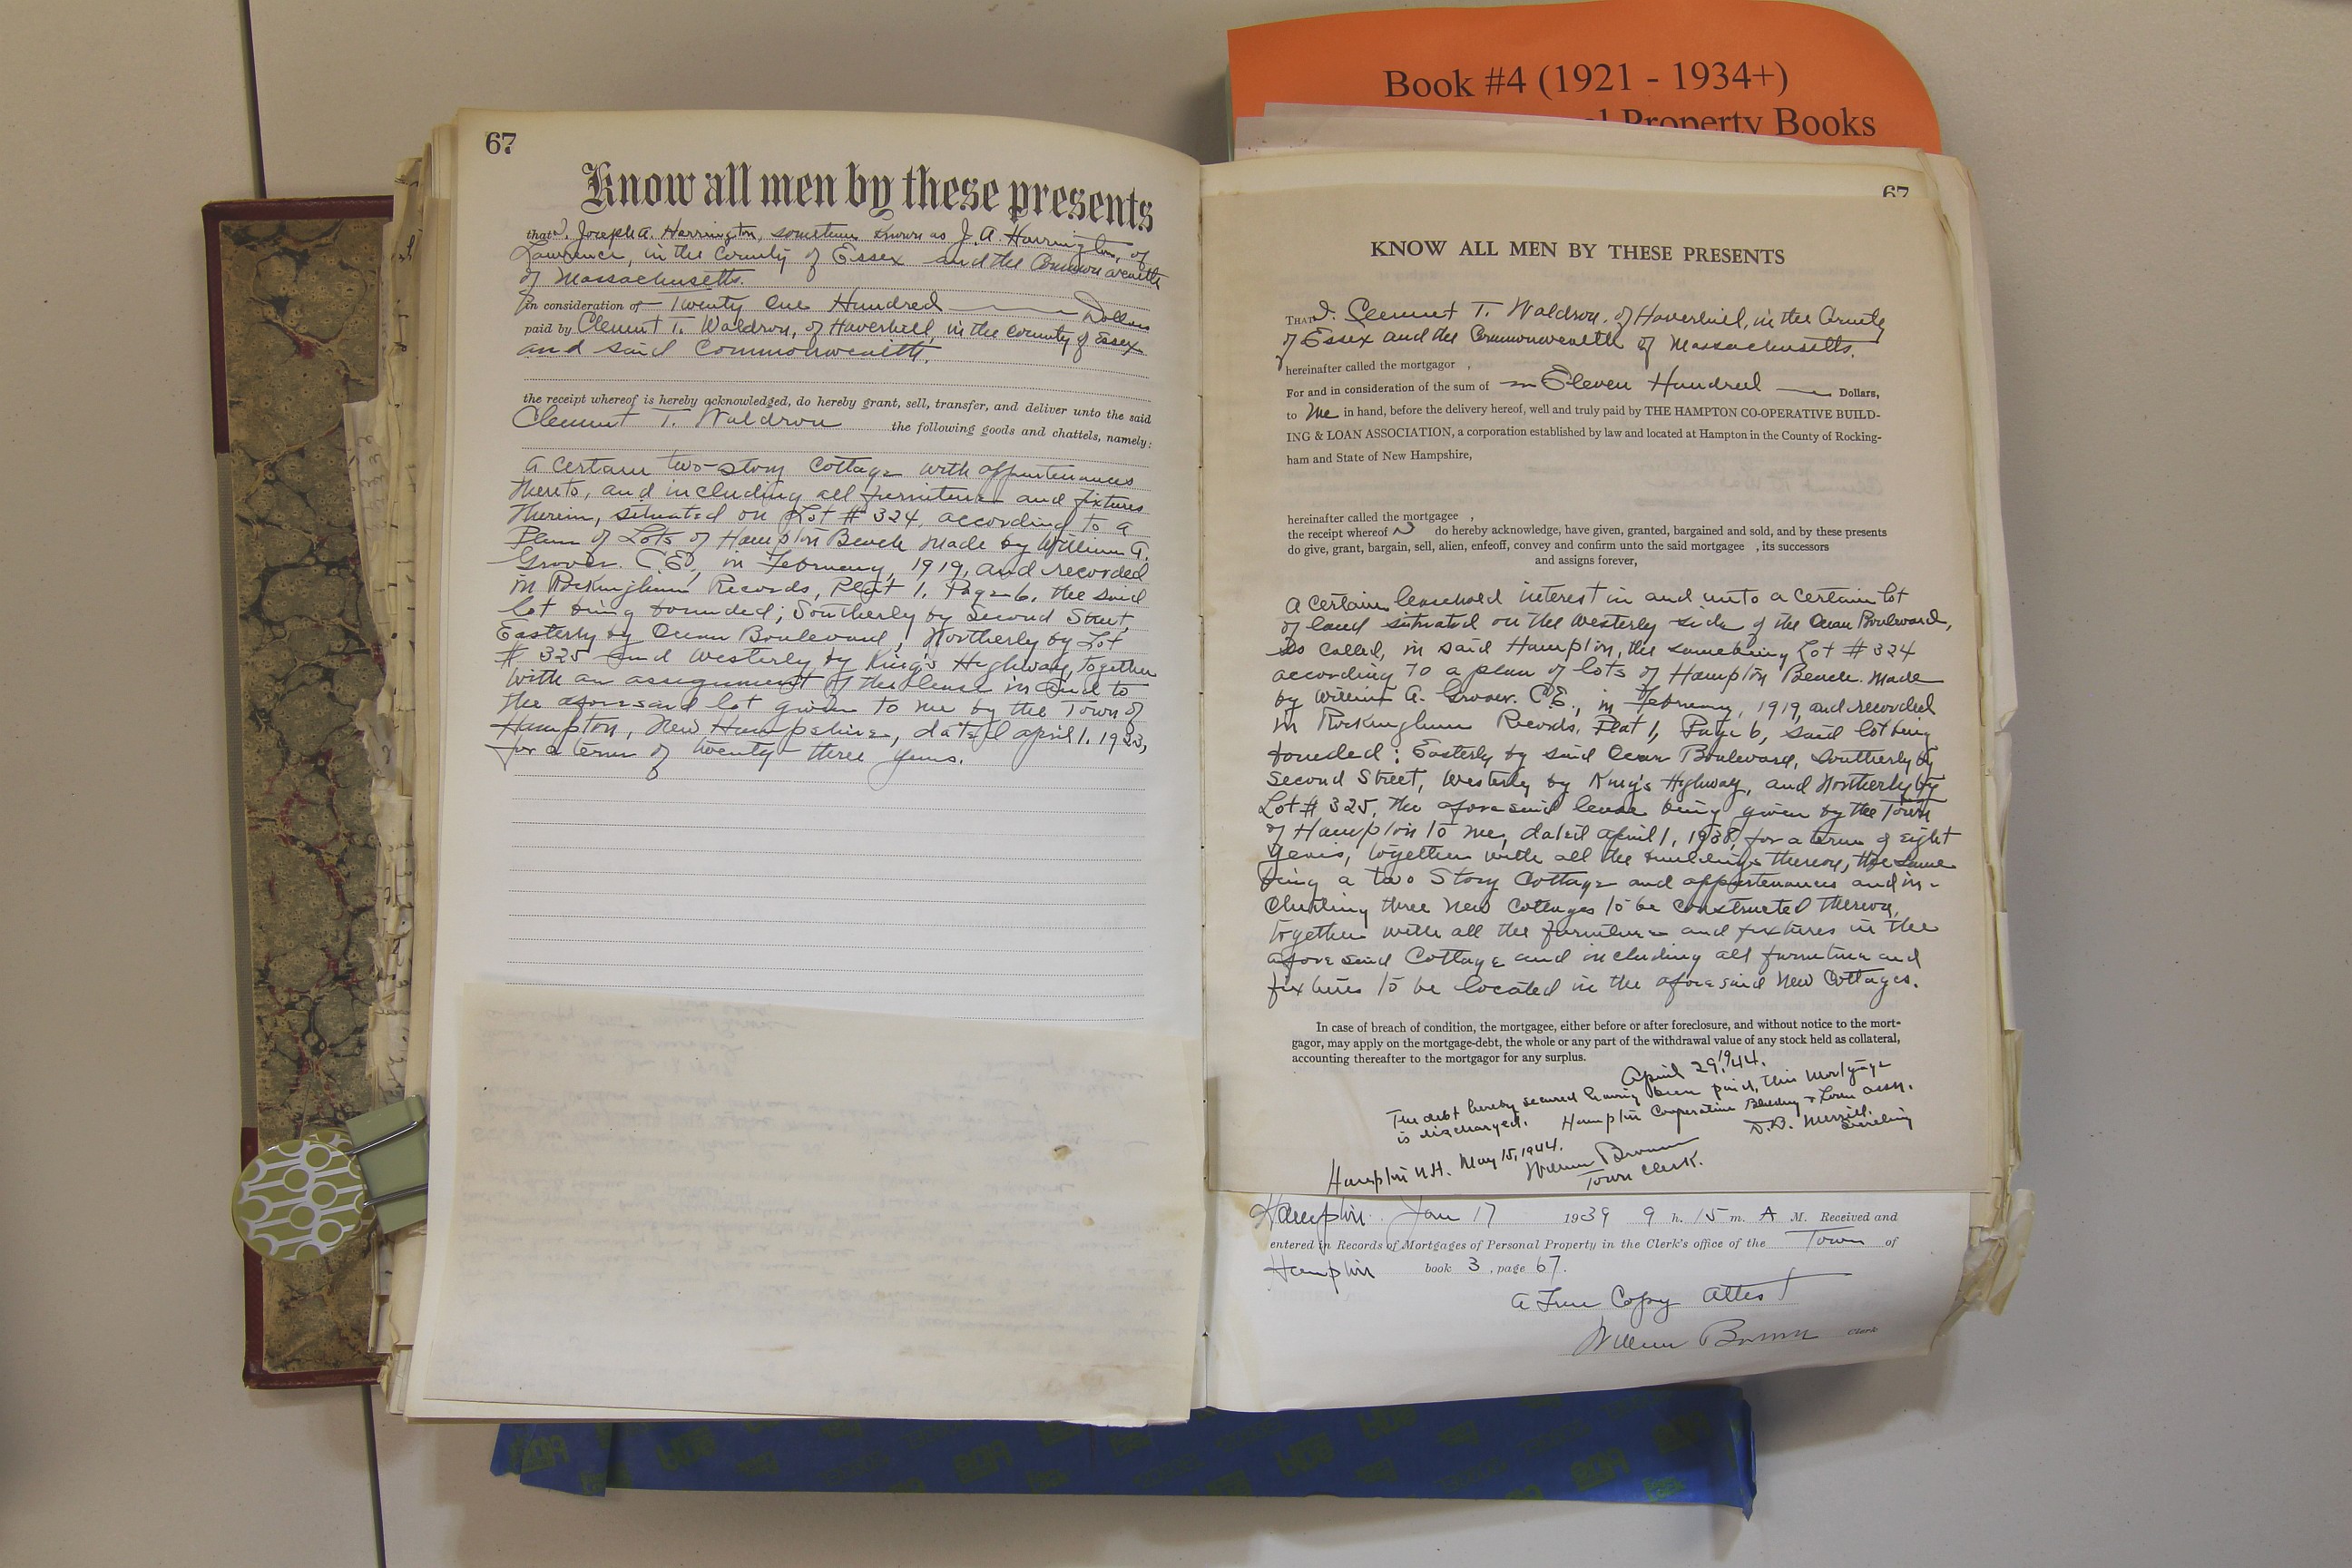 Book #4 (1921 - 1934+)
Property Books
67
Know all men by these presents
that I, Joseph A. Harrington, sometimes known as J. A. Harrington, of
Lawrence, in the County of Essex and the Commonwealth
of Massachusetts.
in consideration of Twenty One Hundred Dollars
paid by Clement T. Waldron, of Haverhill, in the County of Essex
and said Commonwealth.
the receipt whereof is hereby acknowledged, do hereby grant, sell, transfer, and deliver unto the said
Clement T. Waldron the following goods and chattels, namely:
A certain two-story Cottage with appurtenances
thereto, and including all furniture and fixtures
therein, situated on Lot # 324, according to a
Plan of Lots of Hampton Beach made by William A.
Grover. C.E., in February, 1919, and recorded
in Rockingham Records, Plat 1, Page 6, the said
lot being bounded; Southerly by Second Street,
Easterly by Ocean Boulevard, Northerly by Lot
# 325 and Westerly by King's Highway, together
with an assignment of the lease in and to
the aforesaid lot given to me by the Town of
Hampton, New Hampshire, dated April 1, 1923,
for a term of twenty-three years.
67
KNOW ALL MEN BY THESE PRESENTS
THAT I, Clement T. Waldron, of Haverhill, in the County
of Essex and the Commonwealth of Massachusetts.
hereinafter called the mortgagor ,
For and in consideration of the sum of Eleven Hundred Dollars,
to me in hand, before the delivery hereof, well and truly paid by THE HAMPTON CO-OPERATIVE BUILD-
ING & LOAN ASSOCIATION, a corporation established by law and located at Hampton in the County of Rocking-
ham and State of New Hampshire,
hereinafter called the mortgagee ,
the receipt whereof do hereby acknowledge, have given, granted, bargained and sold, and by these presents
do give, grant, bargain, sell, alien, enfeoff, convey and confirm unto the said mortgagee , its successors
and assigns forever,
A certain leasehold interest in and unto a certain lot
of land situated on the Westerly side of the Ocean Boulevard,
so called, in said Hampton, the same being Lot # 324
according to a plan of lots of Hampton Beach. Made
by William A. Grover. C.E., in February, 1919, and recorded
in Rockingham Records, Plat 1, Page 6, said lot being
bounded: Easterly by said Ocean Boulevard, Southerly by
Second Street, Westerly by King's Highway, and Northerly by
Lot # 325, the aforesaid lease being given by the Town
of Hampton to me, dated April 1, 1938, for a term of eight
years, together with all the buildings thereon, the same
being a two Story Cottage and appurtenances and in-
cluding three new Cottages to be constructed thereon,
together with all the furniture and fixtures in the
aforesaid Cottage and including all furniture and
fixtures to be located in the aforesaid new Cottages.
In case of breach of condition, the mortgagee, either before or after foreclosure, and without notice to the mort-
gagor, may apply on the mortgage-debt, the whole or any part of the withdrawal value of any stock held as collateral,
accounting thereafter to the mortgagor for any surplus.
April 29, 1944.
The debt hereby secured having been paid, this Mortgage
is discharged. Hampton Cooperative Building & Loan Assn.
D.D. Merrill.
Hampton N.H. May 15, 1944.
William Brown
Town Clerk.
Hampton Jan 17 1939 9 h. 15 m. A M. Received and
entered in Records of Mortgages of Personal Property in the Clerk's office of the Town of
Hampton book 3, page 67.
A True Copy Attest
William Brown Clerk